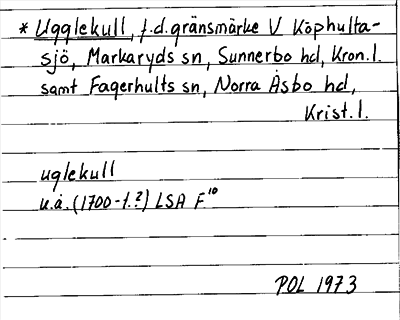 * Ugglekull, f.d. gränsmärke V Köphulta-
sjö, Markaryds sn, Sunnerbo hd, Kron.l.
samt Fagerhults sn, Norra Åsbo hd,
Krist.l.
uglekull
u.å. (1700-t.?) LSA F¹⁰
POL 1973